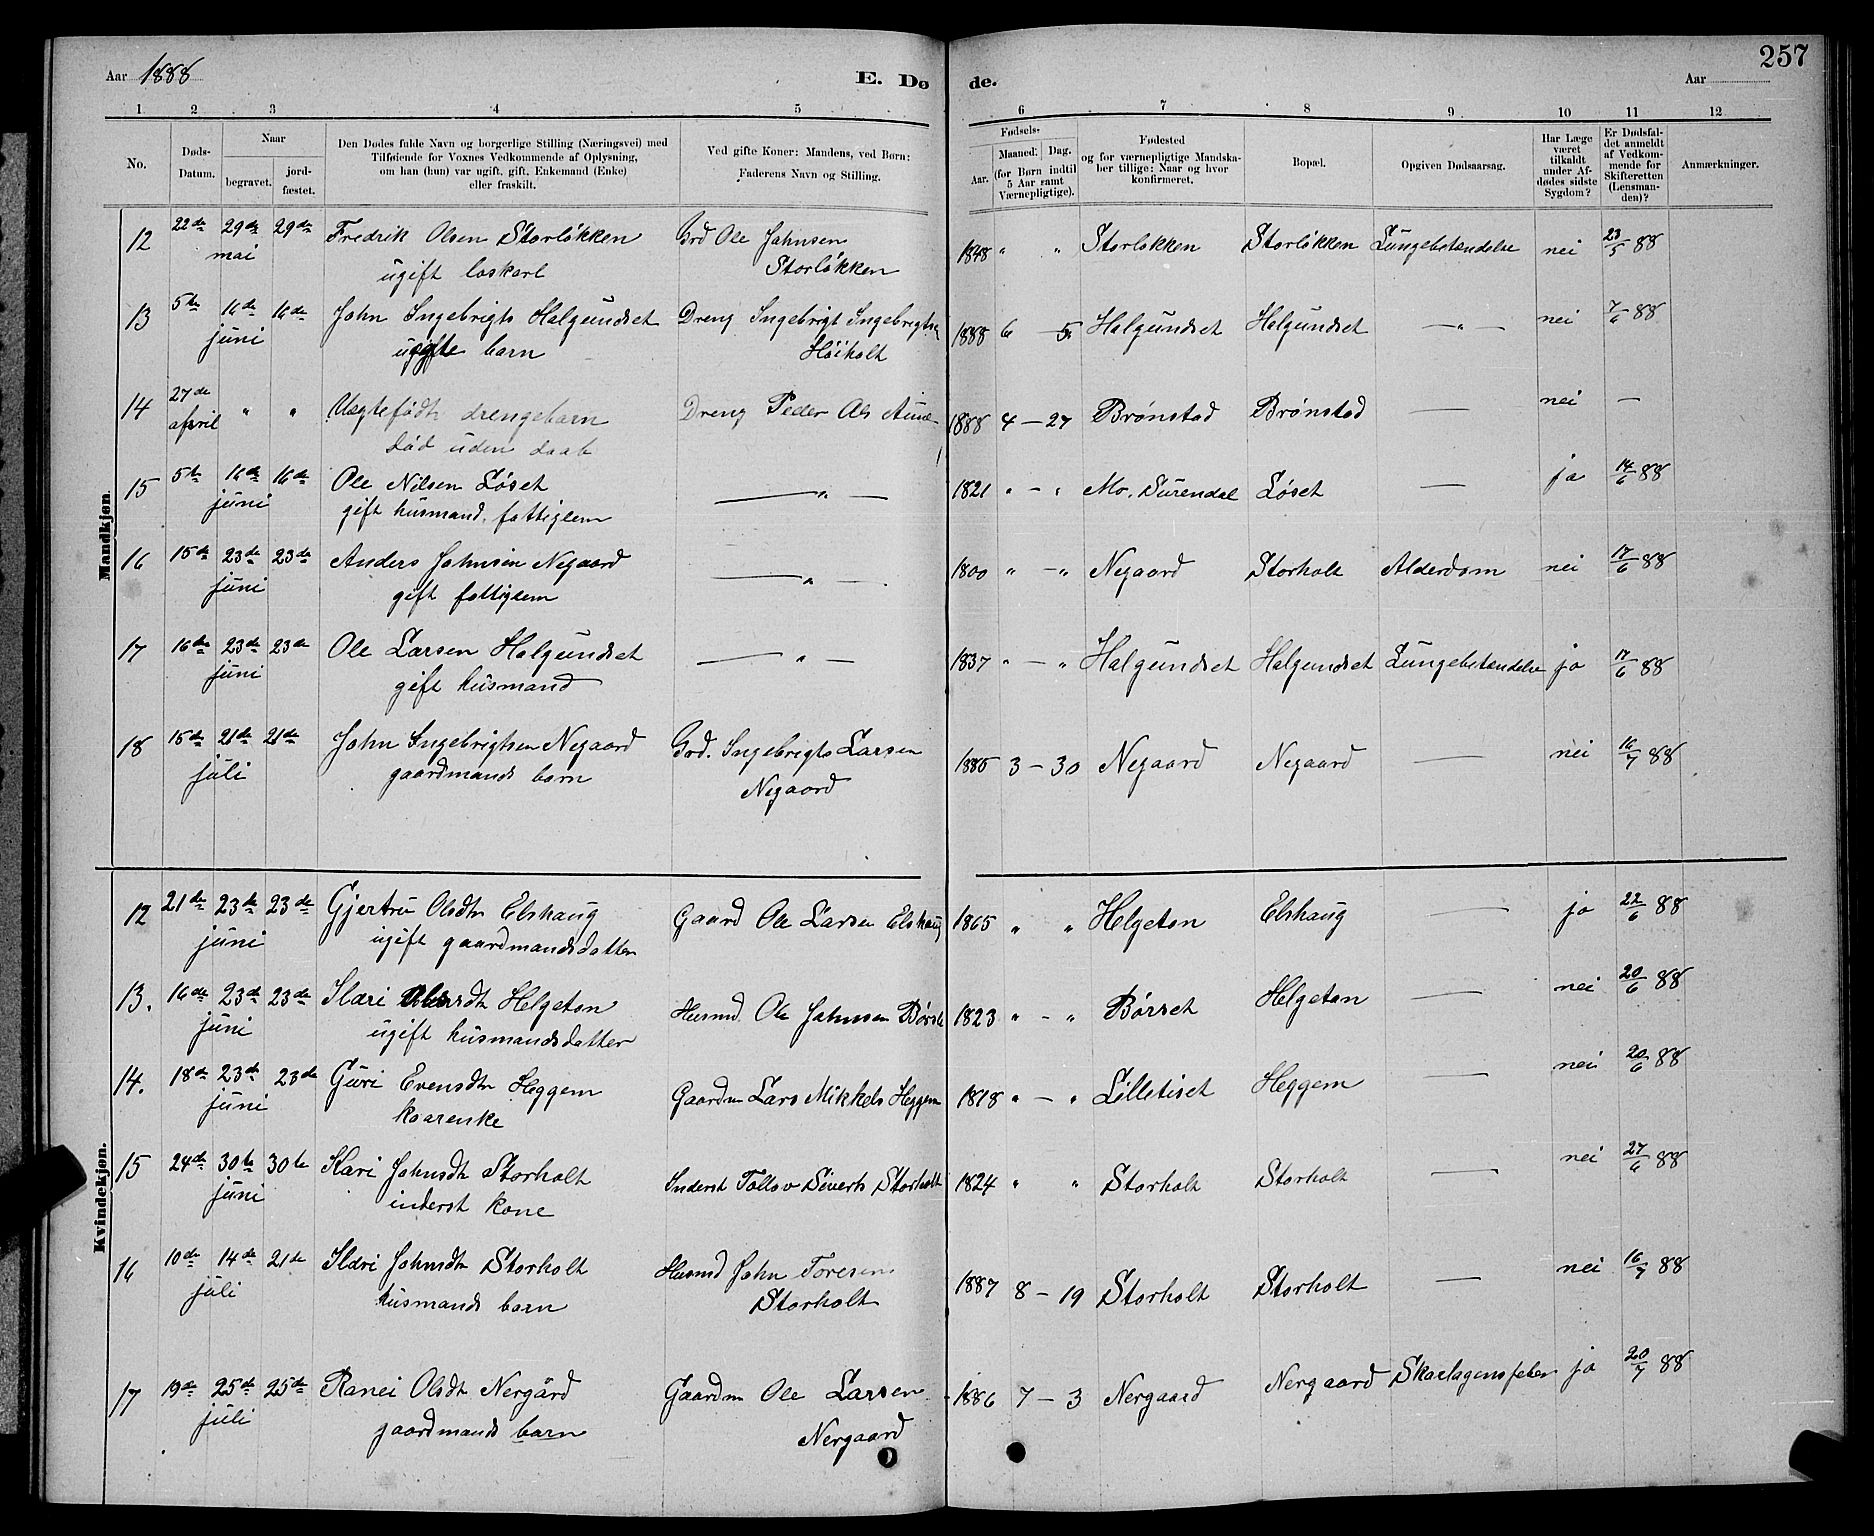 257
Aar 1888 E. Dø de. Aar
1 2 3 4 5 6 7 8 9 10 11 12
No. Døds-Datum. Naar begravet. jord-fæstet.
Den Dødes fulde Navn og borgerlige Stilling (Næringsvei) med Tilføiende for Voxnes Vedkommende af Oplysning, om han (hun) var ugift, gift, Enkemand (Enke) eller fraskilt.
Ved gifte Koner: Mandens, ved Børn: Faderens Navn og Stilling.
Fødsels- Aar. Maaned. Dag. (for Børn indtil 5 Aar samt Værnepligtige).
Fødested og for værnepligtige Mandskaber tillige: Naar og hvor konfirmeret.
Bopæl.
Opgiven Dødsaarsag.
Har Læge været tilkaldt under Afdødes sidste Sygdom?
Er Dødsfaldet anmeldt af Vedkommende for Skifteretten (Lensmanden)?
Anmærkninger.
Mandkjøn.
12 22de 29de 29de Fredrik Olsen Storløkken Grd Ole Johnsen 1848 " " Storløkken Storløkken Lungebetændelse nei 23/5 88
mai ugift løskarl Storløkken
13 5te 16de 16de John Ingebrigts Halgundset Dreng Ingebrigt Ingebrigtsen 1888 6 - 5 Halgundset Halgundset — " — nei 7/6 88
juni barn Høiholt
14 27de " " Uægtefødt drengebarn Dreng Peder Ols 1888 4 - 27 Brønstad Brønstad — nei —
april død uden daab
15 5te 16de 16de Ole Nilsen Løset — " — 1821 " - " Mo. Surendal Løset — ja 14/6 88
juni gift husmand. fattiglem
16 15de 23de 23de Anders Johnsen Negaard — " — 1800 " - " Negaard Storholt Alderdom nei 17/6 88
juni gift fattiglem
17 16de 23de 23de Ole Larsen Halgundset — " — 1837 " - " Halgundset Halgundset Lungebetændelse ja 17/6 88
juni gift husmand
18 15de 21de 21de John Ingebrigtsen Negaard Grd. Ingebrigts Larsen 1885 3 - 30 Negaard Negaard — nei 16/7 88
juli gaardmands barn Negaard
Kvindekjøn.
12 21de 23de 23de Gjertru Olsdtr Elshaug Gaard Ole Larsen Elshaug 1865 " " Helgeton Elshaug — ja 22/6 88
juni ugift gaardmandsdatter
13. 16de 23de 23de Ildri Helgeton Husmd. Ole Johnsen Børset 1823 " - " Børset Helgeton — nei 20/6 88
juni ugift husmandsdatter
14. 18de 23de 23de Guri Evensdtr Heggem Gaardm Lars Mikkels Heggem 1818 " - " Lilletiset Heggem — nei 20/6 88
juni kaarenke
15 24de 30te 30te Kari Johnsdt Storholt Inderst Tollov Siverts Storholt 1824 " " Storholt Storholt — nei 27/6 88
juni inderst kone
16 10de 14de 21de Ildri Johnsdtr Storholt Husmd John Toresen 1887 8 - 19 Storholt Storholt — nei 16/7 88
juli husmands barn Storholt
17 19de 25de 25de Ranei Olsdt Nergård Gaardm Ole Larsen 1886 7 - 3 Nergaard Nergaard Skarlagensfeber ja 20/7 88
juli gaardmands barn Nergaard